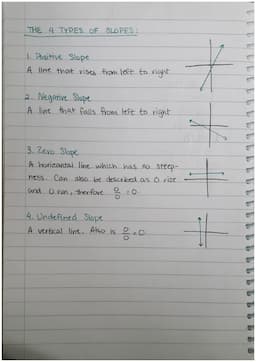 THE 4 TYPES OF SLOPES:
1. Positive Slope
A line that rises from left to right
2. Negative Slope
A line that falls from left to right
3. Zero Slope
A horizontal line which has no steep-
ness. Can also be described as 0 rise
and 0 run, therfore 0/0 = 0.
4. Undefined Slope
A vertical line. Also is 0/0 = 0.